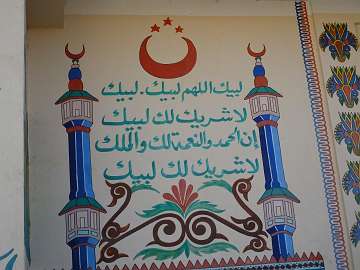 لبيك اللهم لبيك . لبيك
لا شريك لك لبيك
إن الحمد والنعمة لك والملك
لا شريك لك لبيك